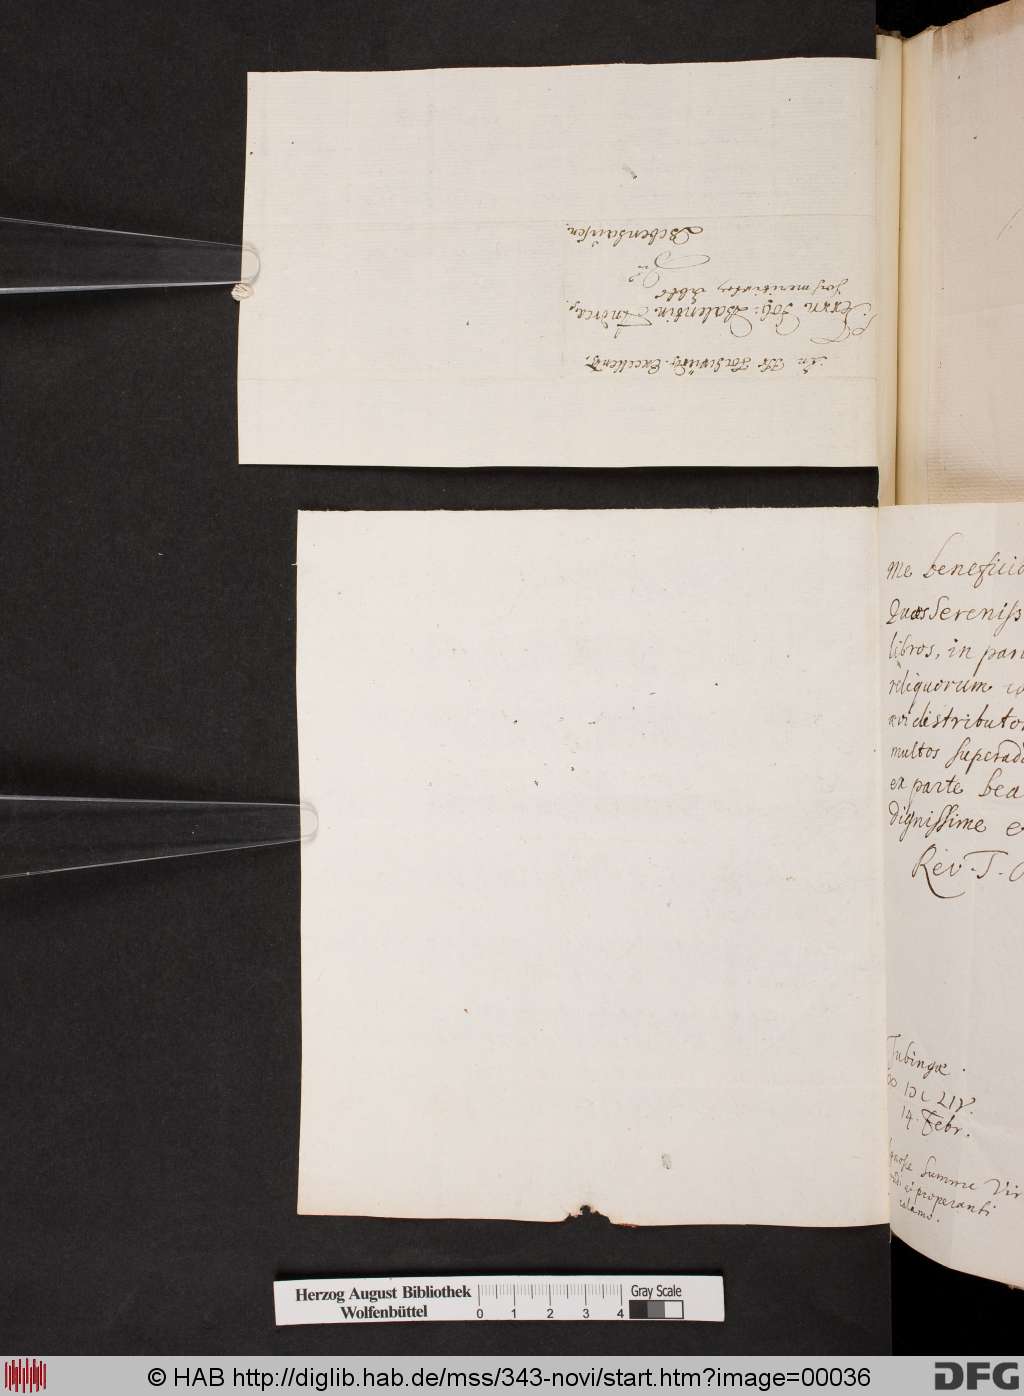 Herrn Joh: Valentin Andreæ,
Zu
Bebenhausen.
me beneficio
Quas Sereniss
libros, in par
reliquorum
ævi distributor
multos superad
ex parte bea
dignissime e
Rev. T.
Tubingæ.
∞ IↃC LIV.
14. Febr.
summe Vir
properanti
calamo.
Herzog August Bibliothek
Wolfenbüttel
0 1 2 3 4
Gray Scale
© HAB http://diglib.hab.de/mss/343-novi/start.htm?image=00036
DFG